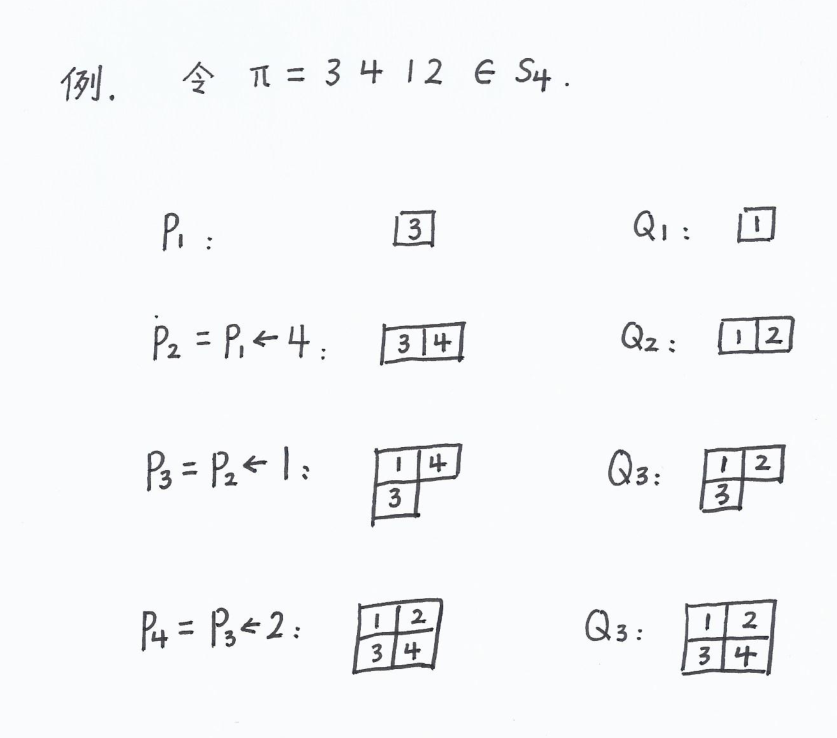 例. 令 π = 3 4 1 2 ∈ S₄.
P₁: 3 Q₁: 1
P₂ = P₁ ← 4: 3 4 Q₂: 1 2
P₃ = P₂ ← 1: 1 4 Q₃: 1 2
3 3
P₄ = P₃ ← 2: 1 2 Q₃: 1 2
3 4 3 4